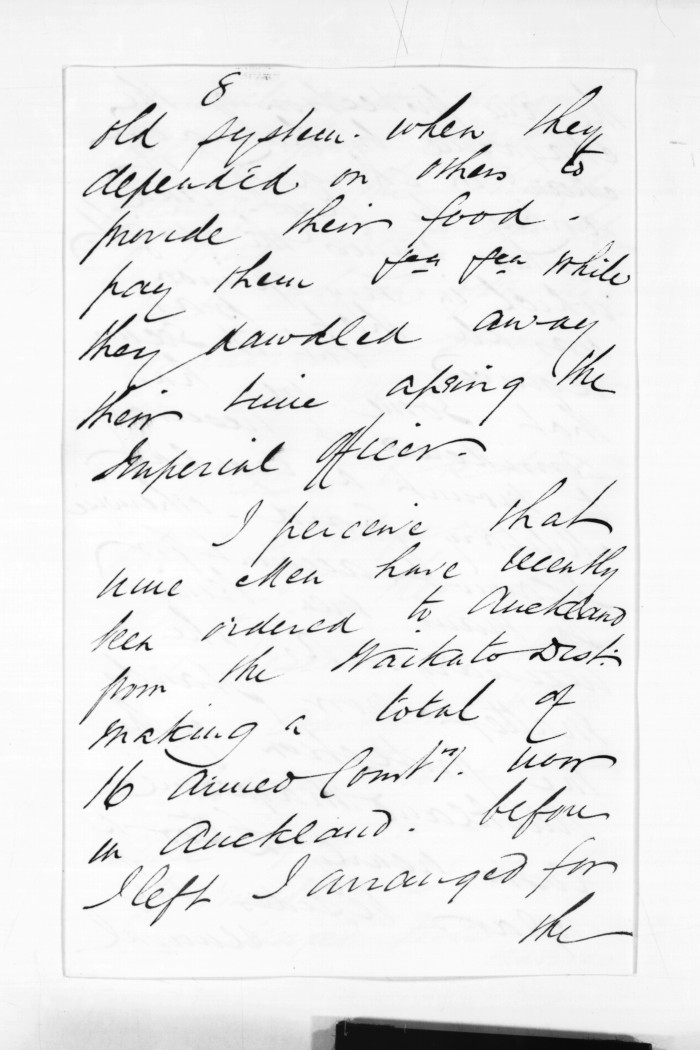 8
old system. when they
depended on others to
provide their food -
pay them &ca &ca while
they dawdled away
their time apeing the
Imperial Officer.
I perceive that
nine Men have recently
been ordered to Auckland
from the Waikato Dist.
making a total of
16 Armed Consty. now
in Auckland. before
I left I arranged for
the